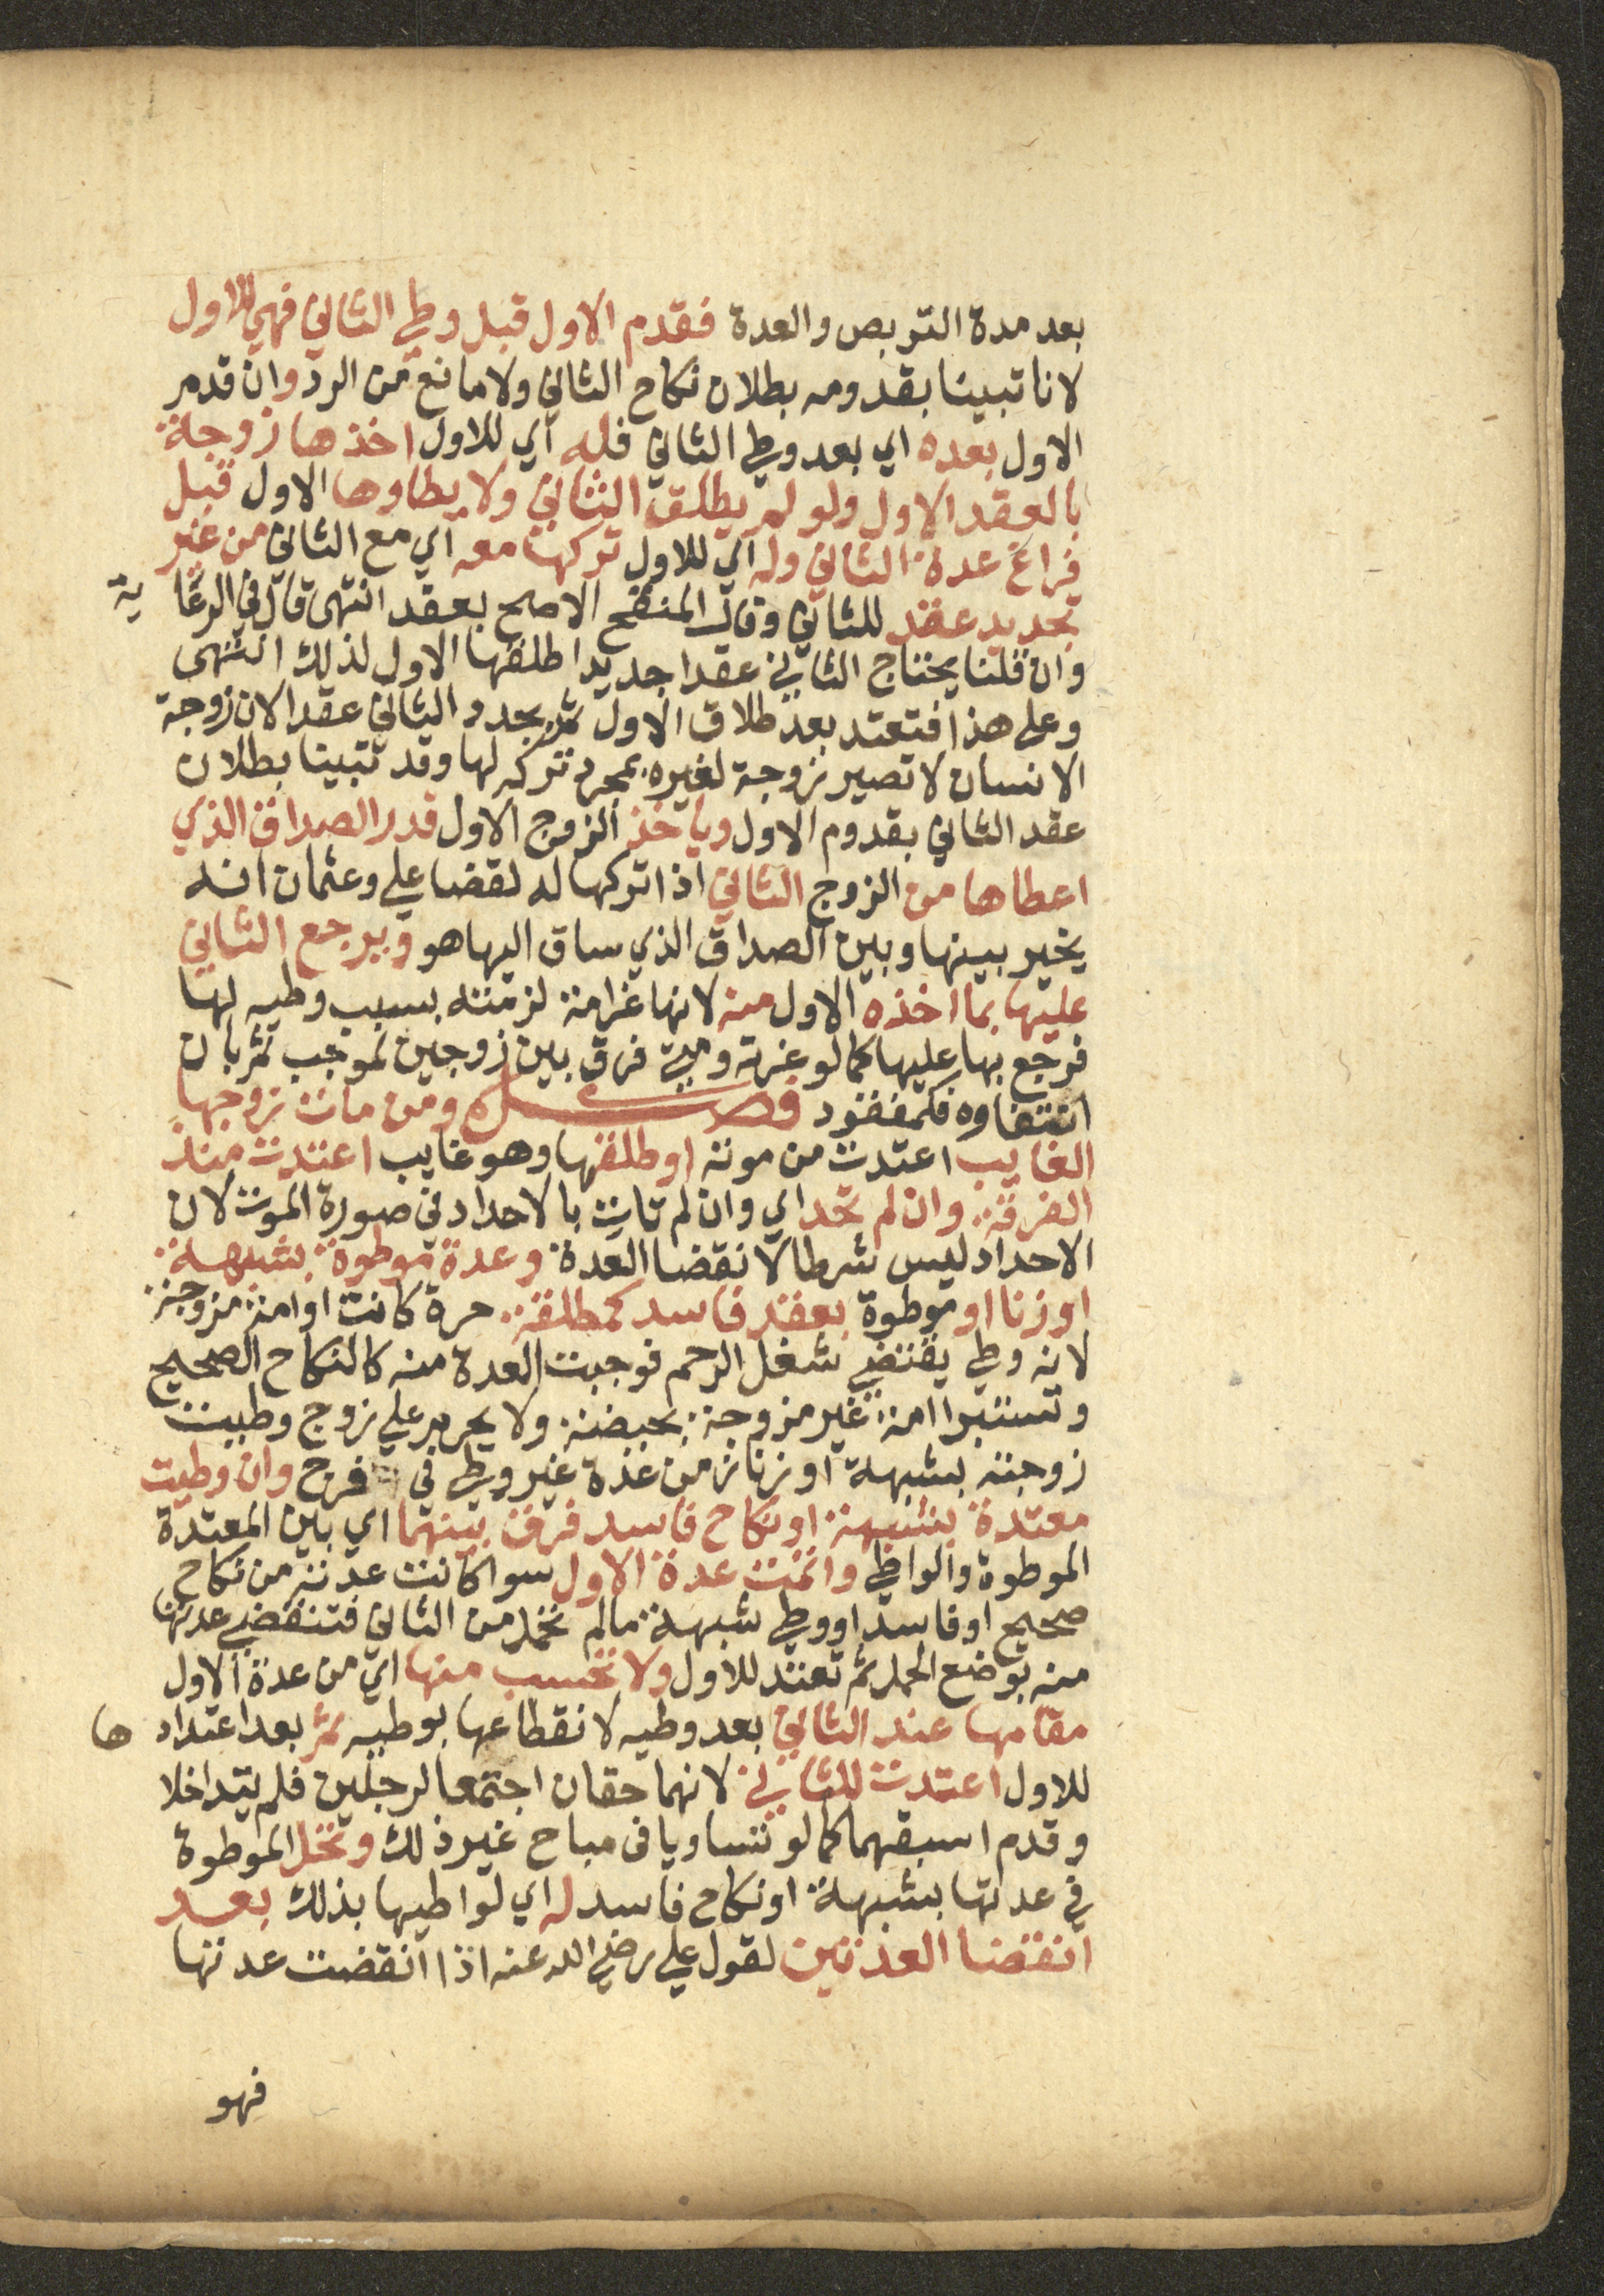 بعد مدة التربص والعدة فقدم الاول قبل وطي الثاني فهي للاول
لانا تبينا بقدومه بطلان نكاح الثاني ولا مانع من الرد وان قدم
الاول بعده اي بعد وطي الثاني فله اي للاول اخذها زوجة
بالعقد الاول ولو لم يطلق الثاني ولا يطاوها الاول قبل
فراغ عدة الثاني وله اي للاول تركها معه اي مع الثاني من غير
تجديد عقد للثاني وقال المنقح الاصح بعقد انتهى قال في الرعاية
وان قلنا يحتاج الثاني عقدا جديدا طلقها الاول لذلك انتهى
وعلى هذا فتعتد بعد طلاق الاول ثم يجدد الثاني عقدا لان زوجة
الانسان لا تصير زوجة لغيره بمجرد تركه لها وقد تبينا بطلان
عقد الثاني بقدوم الاول وياخذ الزوج الاول قدر الصداق الذي
اعطاها من الزوج الثاني اذا تركها له لقضا علي وعثمان انه
يخير بينها وبين الصداق الذي ساق اليها هو ويرجع الثاني
عليها بما اخذه الاول منه لانها غرامة لزمته بسبب وطيه لها
فرجع بها عليها كما لو غرته ومتى فرق بين زوجين لموجب ثم بان
انتفاوه فكمفقود فصل ومن مات زوجها
الغايب اعتدت من موته او طلقها وهو غايب اعتدت منذ
الفرقة وان لم تحد اي وان لم تات بالاحداد في صورة الموت لان
الاحداد ليس شرطا لانقضا العدة وعدة موطوة بشبهة
او زنا او موطوة بعقد فاسد كمطلقة حرة كانت او امة مزوجة
لانه وطي يقتضي شغل الرحم فوجبت العدة منه كالنكاح الصحيح
وتستبرا امة غير مزوجة بحيضة ولا يحرم على زوج وطيت
زوجته بشبهة او زنا زمن عدة غير وطي في فرج وان وطيت
معتدة بشبهة او نكاح فاسد فرق بينهما اي بين المعتدة
الموطوة والواطي واتمت عدة الاول سوا كانت عدته من نكاح
صحيح او فاسد او وطي شبهة ما لم تحمل من الثاني فتنقضي عدتها
منه بوضع الحمل ثم تعتد للاول ولا تحسب منها اي من عدة الاول
مقامها عند الثاني بعد وطيه لانقطاعها بوطيه ثم بعد اعتدادها
للاول اعتدت للثاني لانهما حقان اجتمعا لرجلين فلم يتداخلا
وقدم اسبقهما كما لو تساويا في مباح غير ذلك وتحل الموطوة
في عدتها بشبهة او نكاح فاسد له اي لواطيها بذلك بعد
انقضا العدتين لقول علي رضي الله عنه اذا انقضت عدتها
فهو